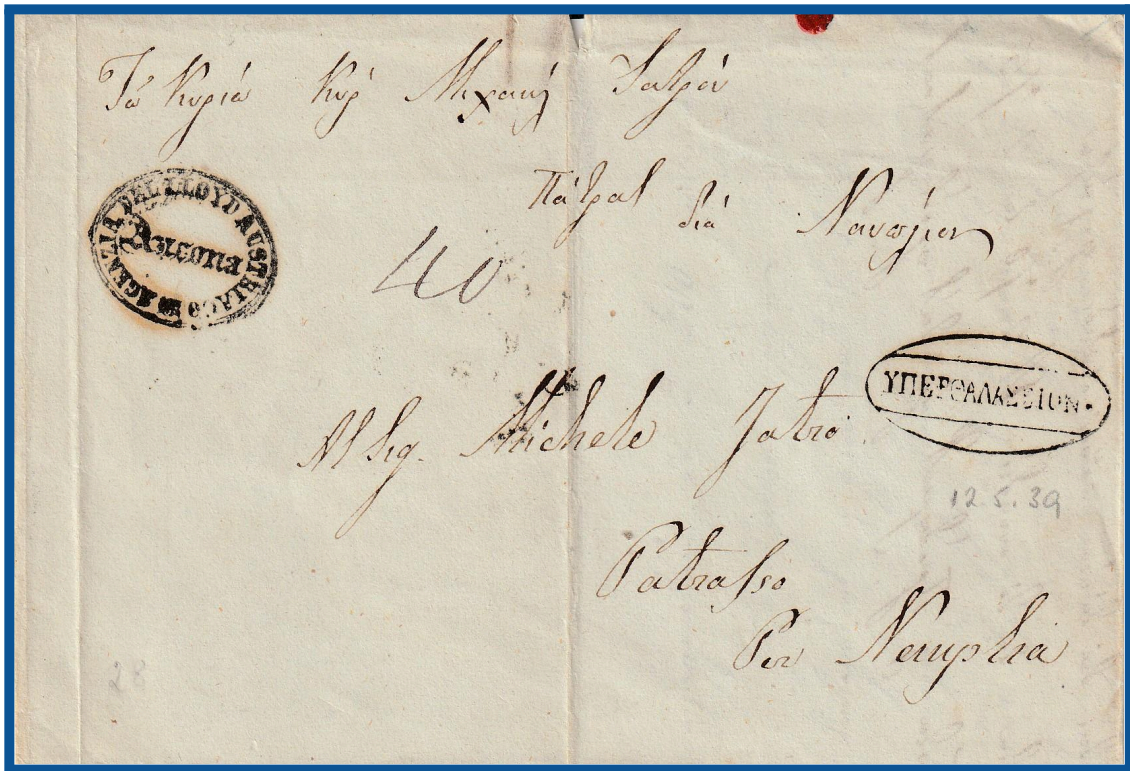 Τῶ Κυρίω Κύρ Μιχαήλ Ἰατρόν
Πάτραι διά Ναυπλίον
AGENZIA DEL LLOYD AUSTRIACO
Ancona
40
ΥΠΕΡΘΑΛΑΣΣΙΟΝ
Al Sig. Michele Jatrò
12.5.39
Patrasso
Per Nauplia
28